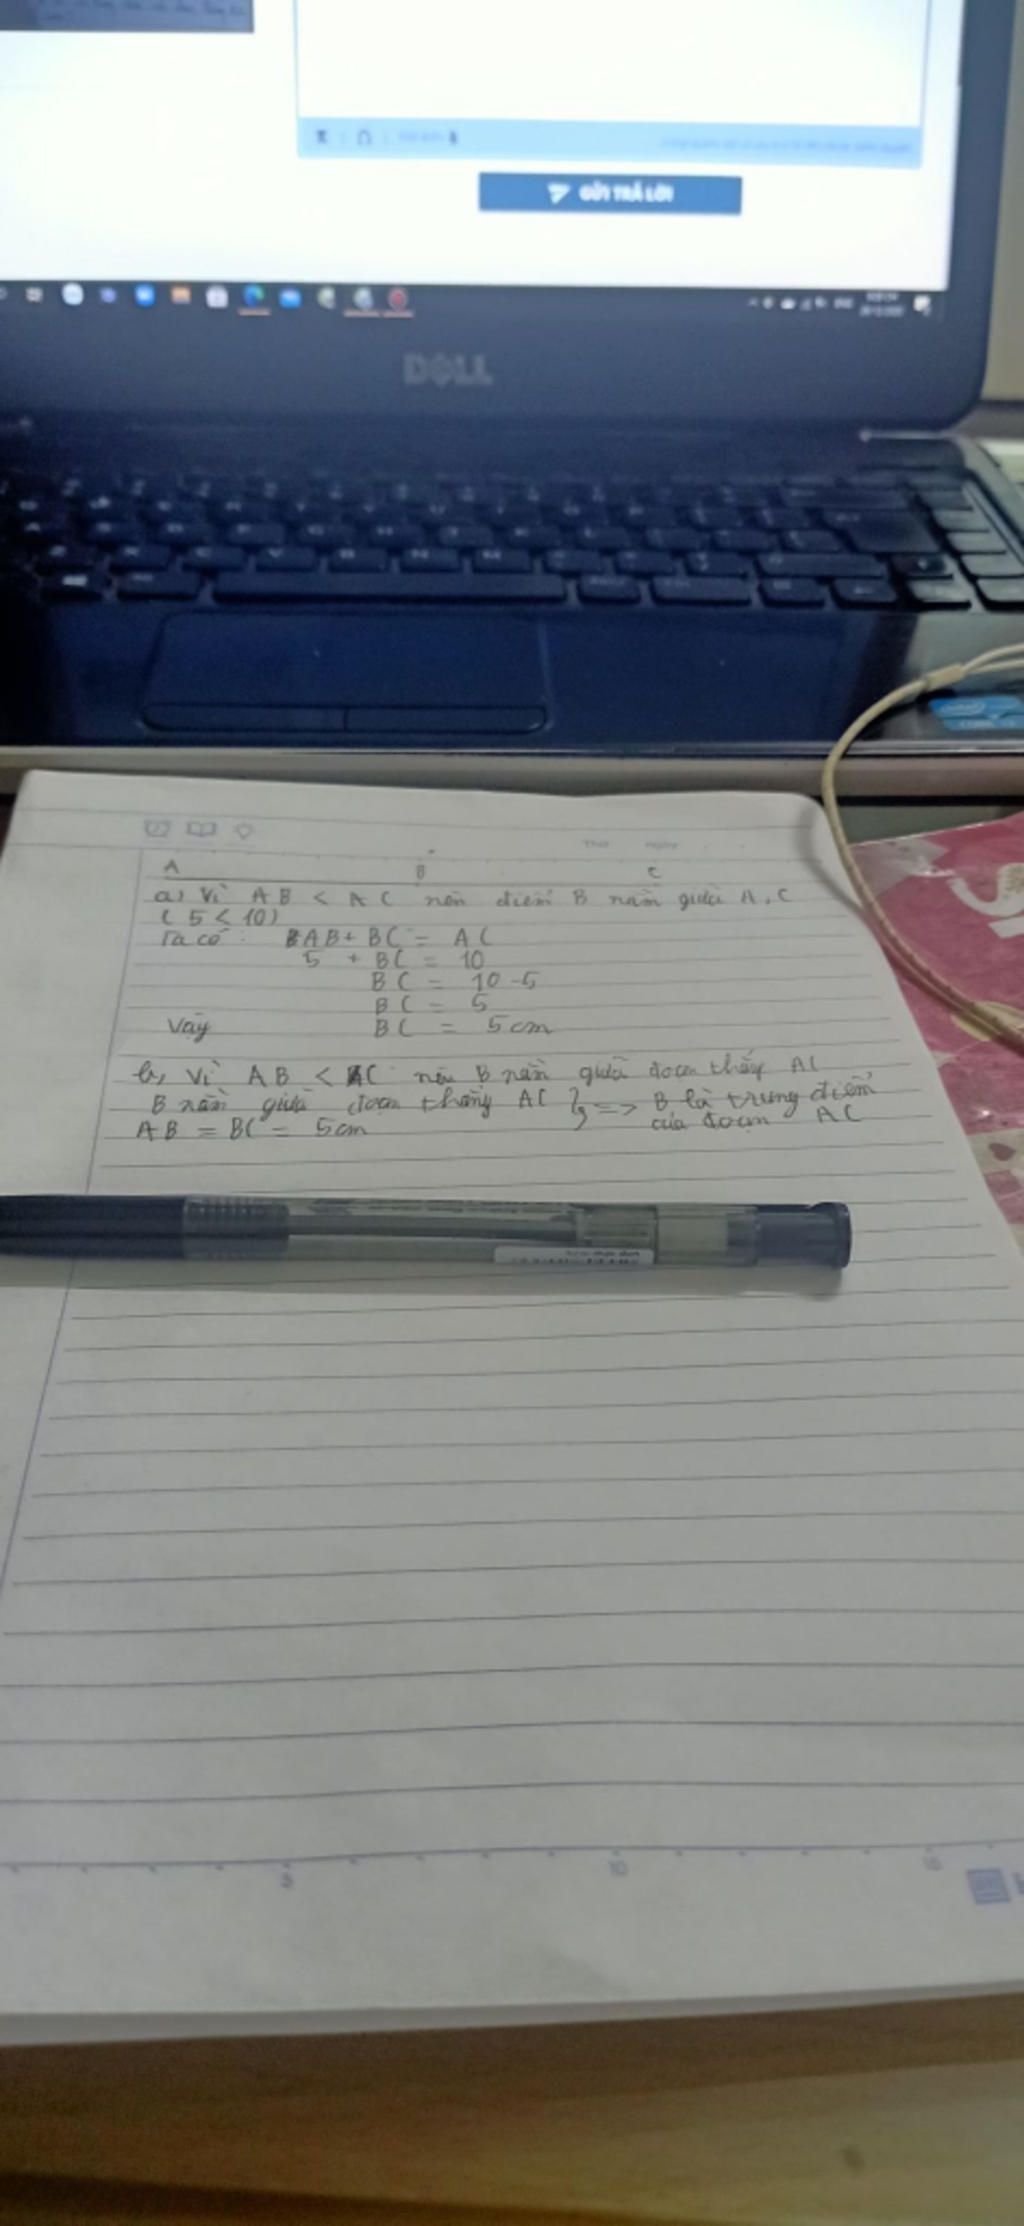 GỬI TRẢ LỜI
DELL
A B C
a) Vì AB < AC nên điểm B nằm giữa A, C
( 5 < 10)
Ta có: AB + BC = AC
5 + BC = 10
BC = 10 - 5
BC = 5
Vậy BC = 5 cm
b, Vì AB < AC nên B nằm giữa đoạn thẳng AC
B nằm giữa đoạn thẳng AC } => B là trung điểm
AB = BC = 5cm của đoạn AC
5 10 15